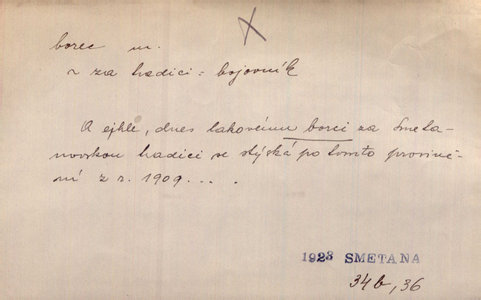 borec m.
~ za tradici = bojovník
A ejhle, dnes takovému borci za Smeta-
novskou tradici se stýská po tomto provině-
ní z r. 1909....
1923 SMETANA
34b, 36